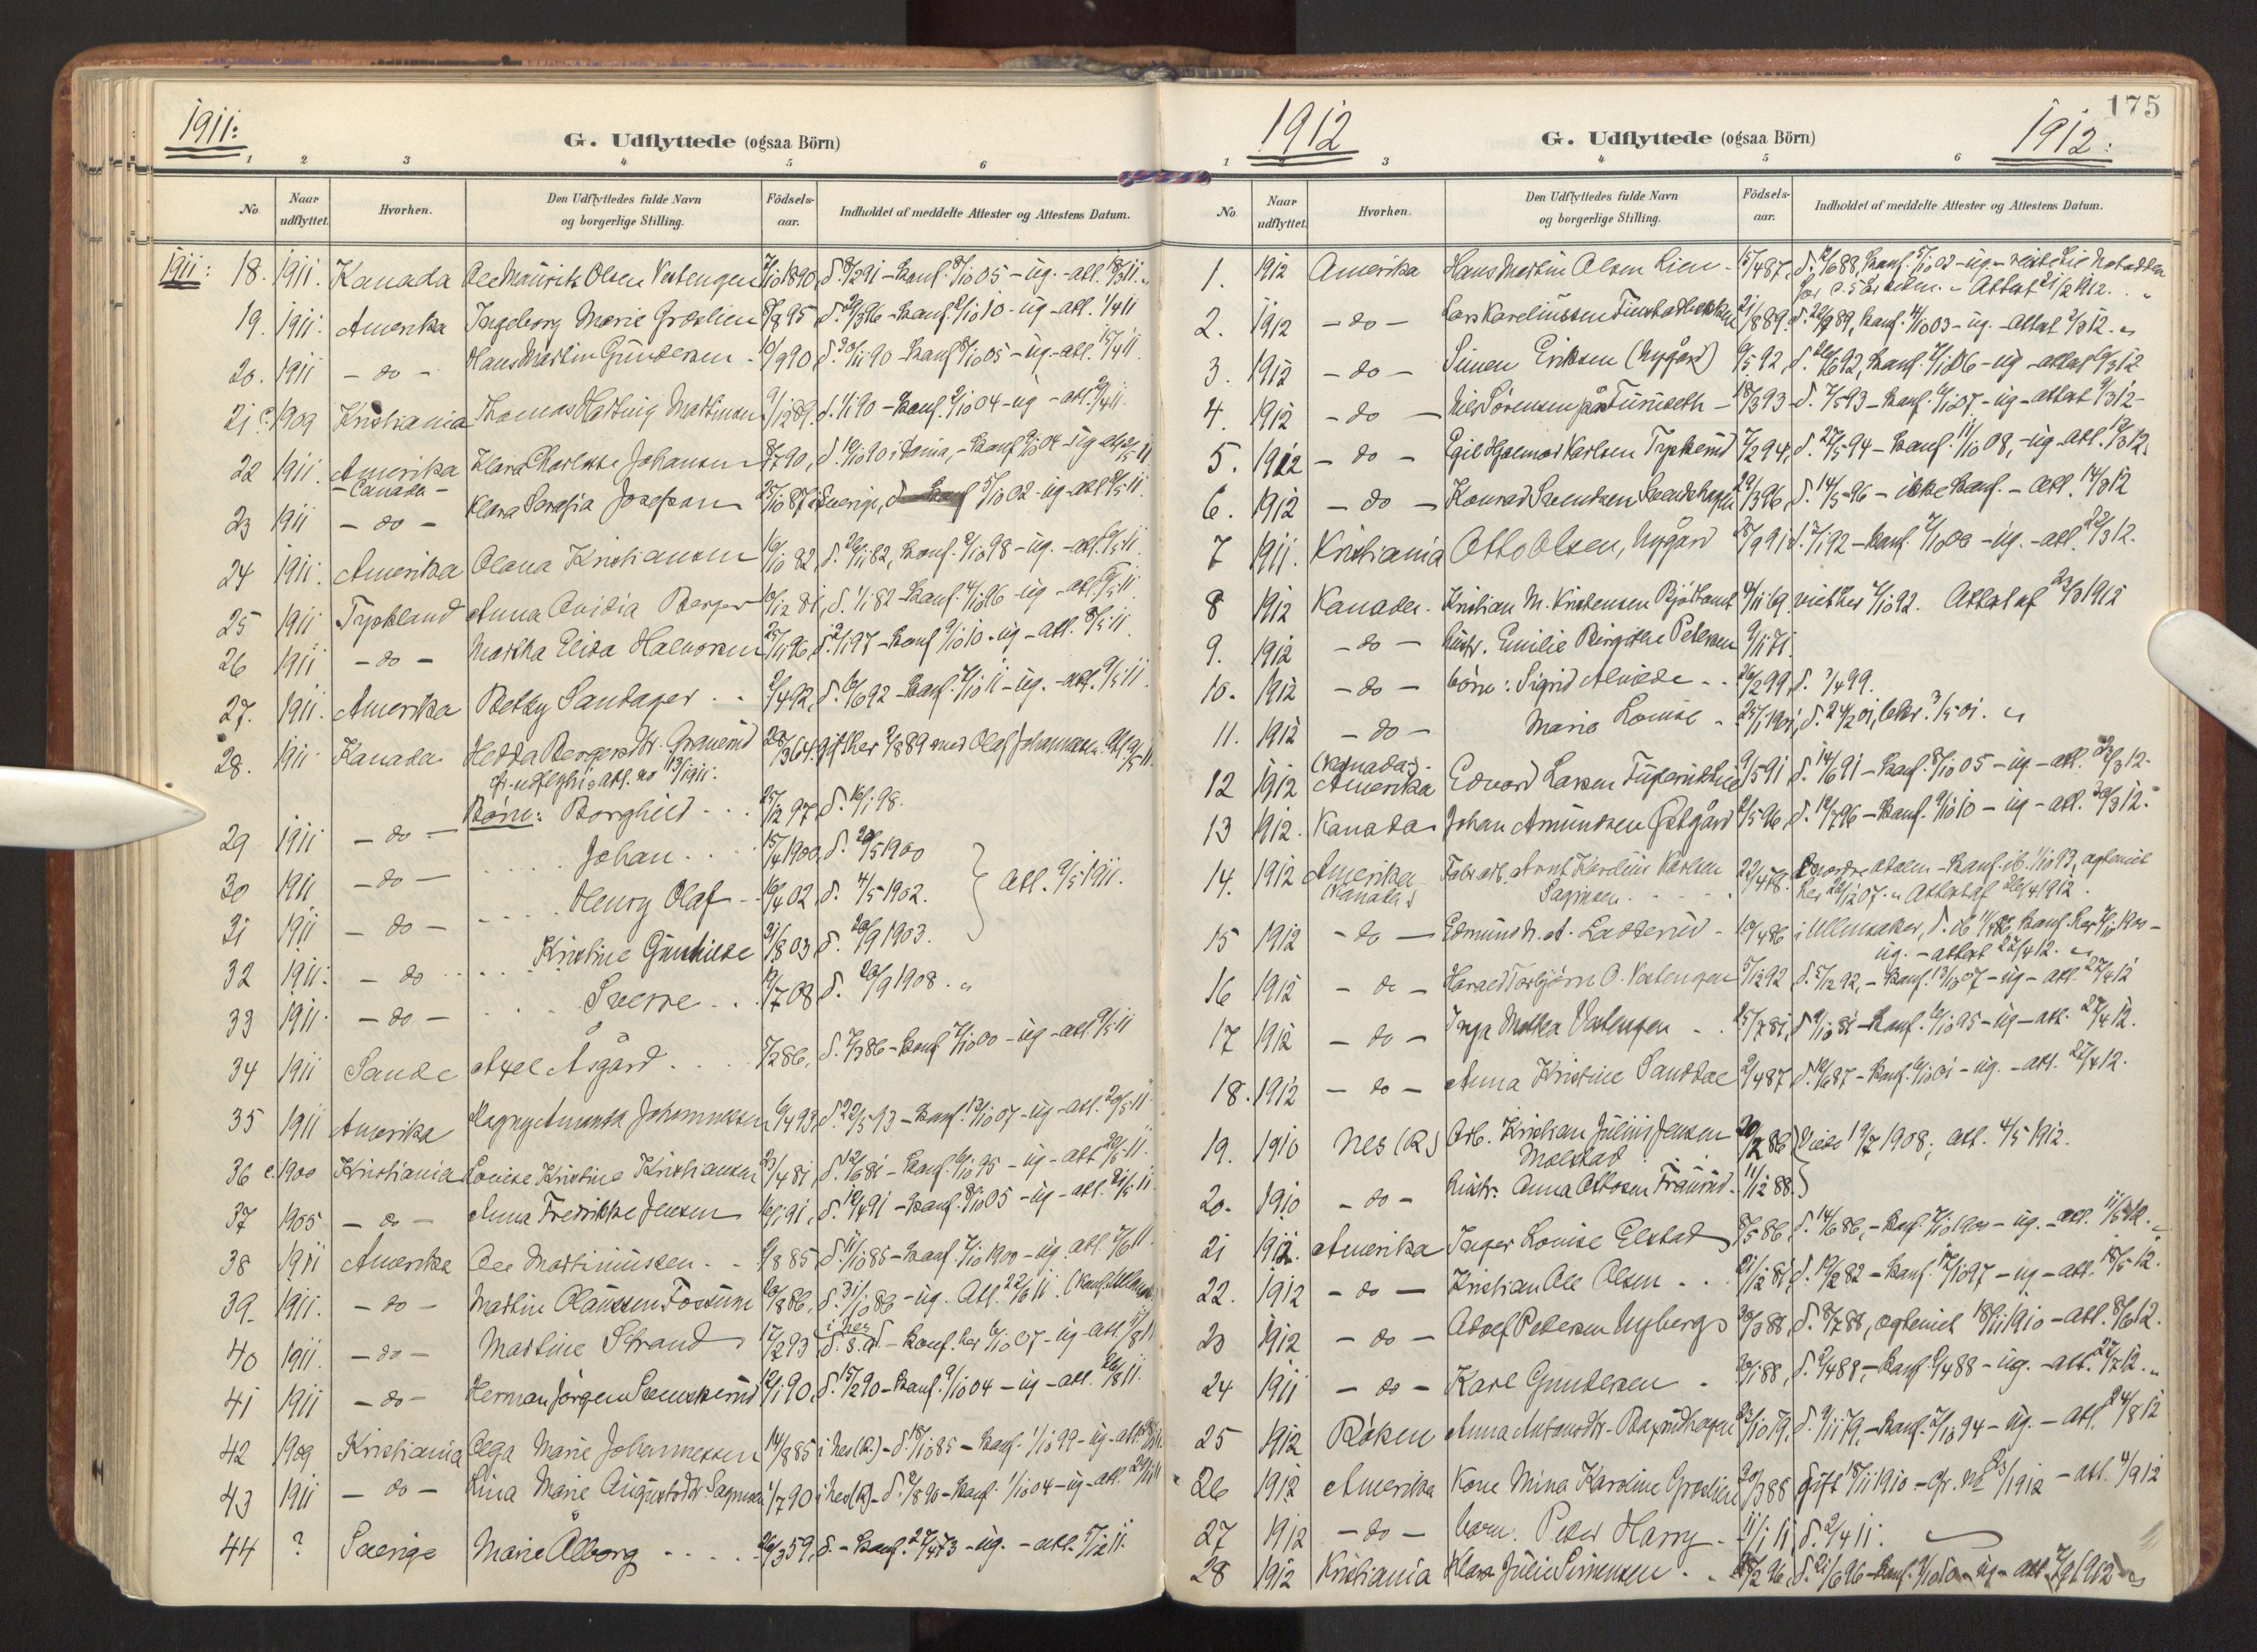 1911:
G. Udflyttede (ogsaa Börn)
1 2 3 4 5 6
No. Naar udflyttet. Hvorhen. Den Udflyttedes fulde Navn og borgerlige Stilling. Födsels-aar. Indholdet af meddelte Attester og Attestens Datum.
1911: 18. 1911. Kanada Ole Maurits Olsen Vestengen 7/10 1890, d. 8/2 91 - Konf. 8/10 05 - ug. - att. 18/3 11.
19. 1911. Amerika Ingeborg Marie Gröslien 8/8 95, d. 29/3 96 - Konf. 9/10 10 - ug - att. 1/4 11
20. 1911 - do - Hans Martin Gundersen - 10/9 90, d. 30/11 90 - Konf. 8/10 05 - ug. - att. 15/4 11.
21 c. 1909 Kristiania Thomas Hartvig Martinsen 9/12 89, d. 1/1 90 - Konf. 9/10 04 - ug - att. 21/4 11.
22 1911. Amerika Klara Charlotte Johansen 8/7 90, Konf. 9/10 04 - ug
- Canada -
23 1911 - do - Klara Serafia Josefsen 25/10 87 i Sverige, 5/10 02 - ug - att. 5/5 11.
24 1911. Amerika Olava Kristiansen 16/10 82, d. 26/11 82, Konf. 2/10 98 - ug. - att. 6/5 11.
25 1911 Tyskland Anna Ovidia Berger 10/12 81, d. 1/1 82 - Konf. 4/10 96 - ug - att. 6/5 11.
26 1911 - do - Martha Elisa Halvorsen 25/11 96, d. 2/1 97 - Konf. 9/10 10 - ug - att. 8/5 11.
27. 1911. Amerika Betsy Sandager 2/4 92, d. 6/6 92 - Konf. 2/10 11 - ug. - att. 9/5 11.
28. 1911. Kanada Hedda Bergersdtr. Granerud 28/3 64, gift her 2/8 89 med Olaf Johannesen. Att. 9/5 11.
fr. udflytn. att. no 13/1911.
29 1911 - do - Börn: Borghild 25/12 97 d. 16/1 98.
30 1911 - do - Johan 15/4 1900, d. 20/5 1900
31 1911 - do - Henry Olaf 10/4 02, d. 4/5 1902. att. 9/5 1911.
32 1911: - do Kristine Gunhilde 31/8 03 d. 20/9 1903.
33 1911. - do - Sverre 19/7 08 d. 20/9 1908.
34 1911 Sande Axel Åsgård 5/2 86, d. 7/3 86 - Konf. 7/10 00 - ug - att. 9/5 11
35 1911 Amerika Magny Amanda Johannessen 6/4 93, d. 22/5 93 - Konf. 13/10 07 - ug - att. 20/5 11.
36 c. 1900 Kristiania Louise Kristine Kristiansen 23/4 81, d. 12/6 81 - Konf. 6/10 95 - ug - att. 20/5 11.
37 1905 - do - Anna Fredrikke Jensen 16/1 91, d. 12/4 91 - Konf. 8/10 05 - ug - att. 21/5 11.
38 1911 Amerika Ole Martiniussen 9/8 85, d. 11/10 85 - Konf. 7/10 1900 - ug. att. 2/6 11.
39. 1911. - do - Martin Olaussen Fossum 20/8 86, d. 31/10 86 - ug. Att. 22/6 11.
40 1911. - do - Martine Strand 17/2 93 i Nes d. s.å. - Konf. her 6/10 07 - ug - att.
41 1911 - do - Herman Jörgen Svenskerud 12/1 90, d. 15/2 90 - Konf. 9/10 04 - ug - att. 26/8 11.
42 1909 Kristiania Olga Marie Johannessen 14/8 85 i Nes (R.) - d. 18/10 85 - Konf. 1/10 99 - ug - att.
43 1911 - do - Lina Marie Augustsdtr. Sagmoen 4/7 90 i Nes (R) - d. 2/8 90 - Konf. 1/10 04 - ug - att.
44 ? Sverige Marie Ålborg 26/3 59, d. - Konf. 27/4 73 - ug. - att. 5/12 11.
175
1912 1912:
G. Udflyttede (ogsaa Börn)
1 2 3 4 5 6
No Naar udflyttet. Hvorhen. Den Udflyttedes fulde Navn og borgerlige Stilling. Födsels-aar. Indholdet af meddelte Attester og Attestens Datum.
1. 1912 Amerika Hans Martin Olsen Lien - 15/4 87, d. 12/6 88, Konf. 5/10 02 - ug. - reiste til Notodden
for c. 5 år siden. - Attest 21/2 1912.
2. 1912 - do - Lars Kareliussen 21/8 89. d. 22/9 89, Konf. 4/10 03 - ug. - attest 2/3 12.
3. 1912 - do - Simen Eriksen (Nygård) 9/5 92, d. 26/6 92, Konf. 7/10 06 - ug - attest 6/3 12
4. 1912 - do - Nils Sörensen på Furuseth - 18/3 93 - d. 7/5 93 - Konf. 6/10 07 - ug - attest 9/3 12 -
5. 1912 - do - Egil Hjalmar Karlsen Tryterud 7/2 94, d. 27/5 94 - Konf. 11/10 08, - ug - att. 12/3 12.
6. 1912 - do - Konrad Svendsen 29/3 96, d. 14/5 96 - ikke Konf. - att. 14/3 12
7 1911. Kristiania Otto Olsen, Nygård 28/9 91 d. 7/1 92 - Konf. - ug. - att. 22/3 12.
8 1912 Kanada. Kristian M. Kristensen 12/11 69. viet her 7/10 92. Attest af 23/3 1912
9. 1912 - do - hustr. Emilie Birgithe Petersen 9/11 71.
10. 1912 - do - börn: Sigrid Alvilde 26/2 99, d. 3/4 99.
11. 1912 - do - Marie Louise 25/1 1901, d. 24/2 01, bekr. 3/5 01.
(Kanada).
12 1912 Amerika Edvard Larsen 9/5 91 d. 14/6 91 - Konf. 8/10 05 - ug - att. 29/3 12.
13 1912. Kanada Johan Amundsen Östgård 21/5 96, d. 12/7 96 - Konf. 9/10 10 - ug - att. 30/3 12.
14. 1912 Amerika Fabr.arb. Arnt Karelius Karlsen 22/4 78. Konf. ib. 1/10 93, ægteviet
(Kanada) Sagmoen. her 26/12 07. - Attest af 26/4 1912.
15 1912 - do - Edmund N. A. Ladderud - 10/4 86 i Ullensaker, d. ib 11/7 86, Konf. her 7/10 1900 -
ug. - attest 22/4 12.
16 1912 - do - Harald Torbjörn O. Vestengen 5/12 92 d. 5/12 92, - Konf. 13/10 07 - ug - att. 27/4 12
17 1912 - do - Inga Mathea Vestengen 25/7 81, d. 9/10 81 - Konf. 6/10 95 - ug - att. 27/4 12.
18. 1912 - do - Anna Kristine Sanddal 2/4 87, d. 12/6 87 - Konf. 6/10 01 - ug. - att. 27/4 12.
19. 1910 Nes (R) Arb. Kristian Julius Jensen 20/2 86 Viede 19/7 1908; att. 4/5 1912.
Molstad
20. 1910 - do - hustr. Anna Ottosen Fraurud - 11/12 88.
21 1912. Amerika Inger Louise Elstad 8/5 86, d. 14/6 86, - Konf. 7/10 1900 - ug. - att. 11/5 12.
22. 1912 - do - Kristian Ole Olsen 21/12 81, d. 19/2 82 - Konf. 17/10 97 - ug - att. 18/5 12.
23 1912 - do - Adolf Petersen Nybergs 30/3 88, d. 8/7 88, ægteviet 18/11 1910 - att. 8/6 12.
24 1911 - do - Karl Gundersen 20/1 88, d. 2/4 88, - Konf. 2/4 88 - ug. - att. 22/7 12.
25 1912 Röken Anna Antonsdtr. 23/10 79, d. 9/11 79, - Konf. 7/10 94 - ug. - att. 24/8 12
26 1912 Amerika Kone Mina Karoline Gröslien 20/3 88 gift 18/11 1910 - cfr. No 23/1912 - att. 4/9 12
27 1912 - do - barn. Peter Harry - 11/1 11 d. 2/4 11.
28 1912 Kristiania Klara Julie Simensen d. 21/6 96 - Konf. - ug - att. 7/9 1912